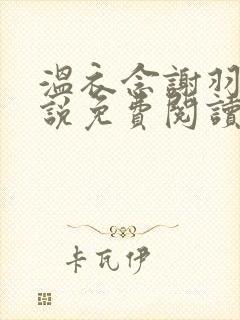 溫衣念謝羽
說免費閱讀
卡瓦伊